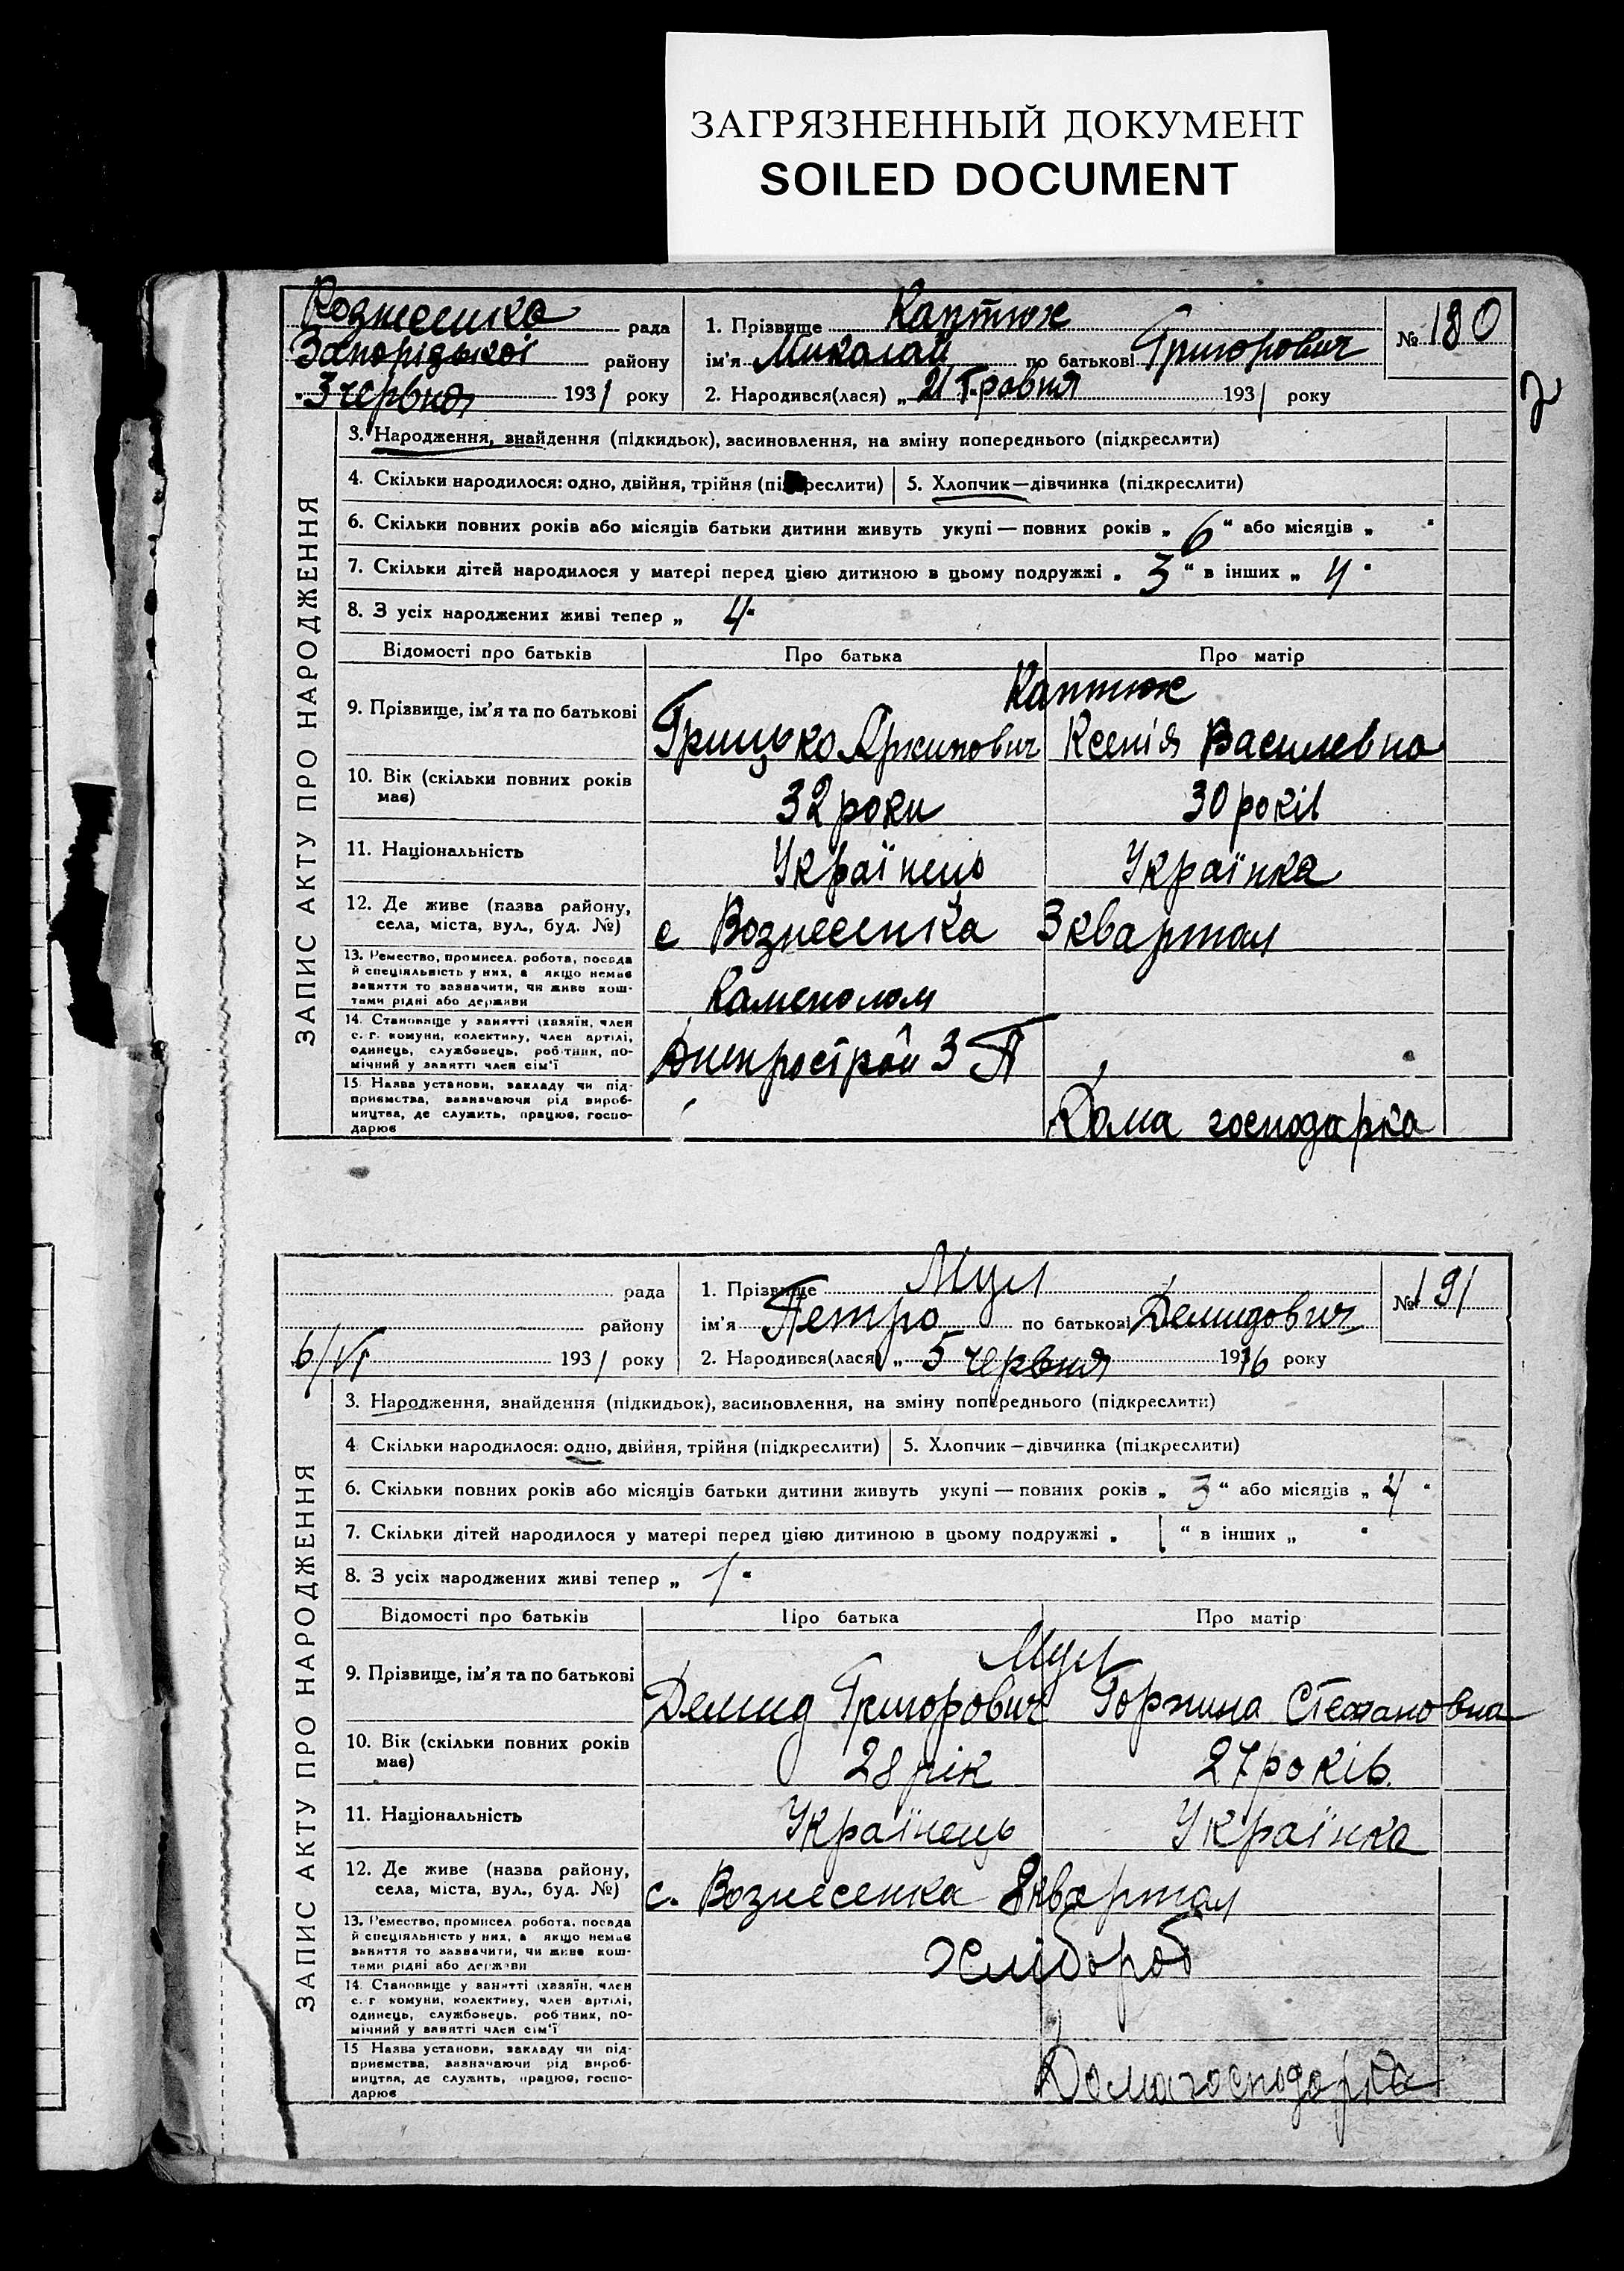 ЗАГРЯЗНЕННЫЙ ДОКУМЕНТ
SOILED DOCUMENT
Вознесенка рада
Запорізької району
"3 червня 1931 року
1. Прізвище Каптюх
ім'я Миколай по батькові Григорович
2. Народився(лася) „ 21 Травня 1931 року
№ 180
2
ЗАПИС АКТУ ПРО НАРОДЖЕННЯ
3. Народження, знайдення (підкидьок), засиновлення, на зміну попереднього (підкреслити)
4. Скільки народилося: одно, двійня, трійня (підкреслити) 5. Хлопчик—дівчинка (підкреслити)
6. Скільки повних років або місяців батьки дитини живуть укупі — повних років „ 6 “ або місяців „ "
7. Скільки дітей народилося у матері перед цією дитиною в цьому подружжі „ 3 “ в інших „ 4 "
8. З усіх народжених живі тепер „ 4 "
Відомості про батьків Про батька Про матір
9. Прізвище, ім'я та по батькові
Каптюх
Грицько Архипович Ксенія Василевна
10. Вік (скільки повних років має)
32 роки 30 років
11. Національність Українець Українка
12. Де живе (назва району, села, міста, вул., буд. №)
с Вознесенка 3 квартал
13. Ремество, промисел, робота, посада й спеціяльність у них, а якщо немає заняття то зазначити, чи живе коштами рідні або держави
Каменолом
14. Становище у занятті (хазяїн, член с. г. комуни, колективу, член артілі, одинець, службовець, робітник, помічний у занятті член сім'ї
Днепрострой 3 П
15. Назва установи, закладу чи підприємства, зазначаючи рід виробництва, де служить, працює, господарює
Дома господарка
рада
району
6/VI 1931 року
1. Прізвище Мул
ім'я Петро по батькові Демидович
2. Народився(лася) „ 5 червня 19 року
№ 191
ЗАПИС АКТУ ПРО НАРОДЖЕННЯ
3. Народження, знайдення (підкидьок), засиновлення, на зміну попереднього (підкреслити)
4 Скільки народилося: одно, двійня, трійня (підкреслити) 5. Хлопчик—дівчинка (підкреслити)
6. Скільки повних років або місяців батьки дитини живуть укупі — повних років „ 3 “ або місяців „ 4 "
7. Скільки дітей народилося у матері перед цією дитиною в цьому подружжі „ 1 “ в інших „ "
8. З усіх народжених живі тепер „ 1 "
Відомості про батьків Про батька Про матір
9. Прізвище, ім'я та по батькові
Мул
Демид Григорович Горпина Стефановна
10. Вік (скільки повних років має)
28 рік 27 років.
11. Національність Українець Українка
12. Де живе (назва району, села, міста, вул., буд. №)
с. Вознесенка 8 квартал
13. Ремество, промисел, робота, посада й спеціяльність у них, а якщо немає заняття то зазначити, чи живе коштами рідні або держави
Хлібороб
14. Становище у занятті (хазяїн, член с. г комуни, колективу, член артілі, одинець, службовець, робітник, помічний у занятті член сім'ї
15 Назва установи, закладу чи підприємства, зазначаючи рід виробництва, де служить, працює, господарює
Домагосподарка